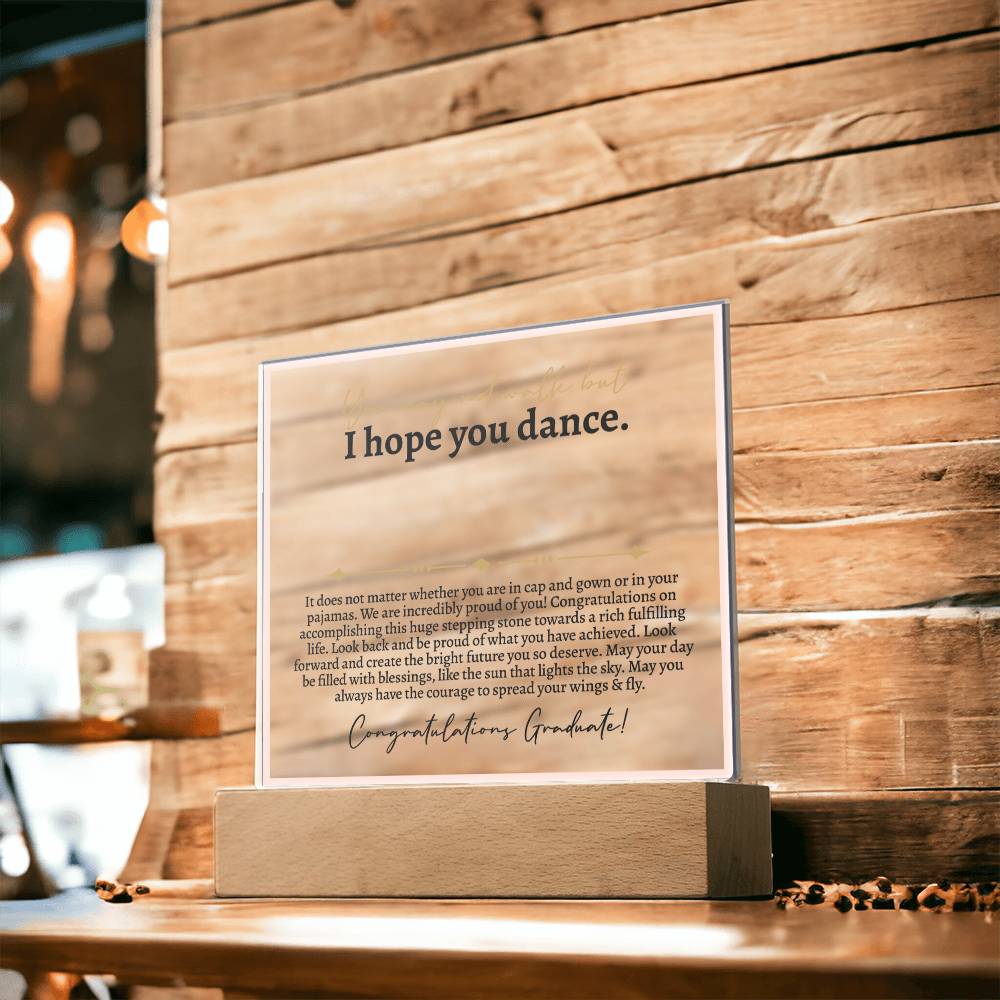 You may not walk but
I hope you dance.
It does not matter whether you are in cap and gown or in your
pajamas. We are incredibly proud of you! Congratulations on
accomplishing this huge stepping stone towards a rich fulfilling
life. Look back and be proud of what you have achieved. Look
forward and create the bright future you so deserve. May your day
be filled with blessings, like the sun that lights the sky. May you
always have the courage to spread your wings & fly.
Congratulations Graduate!